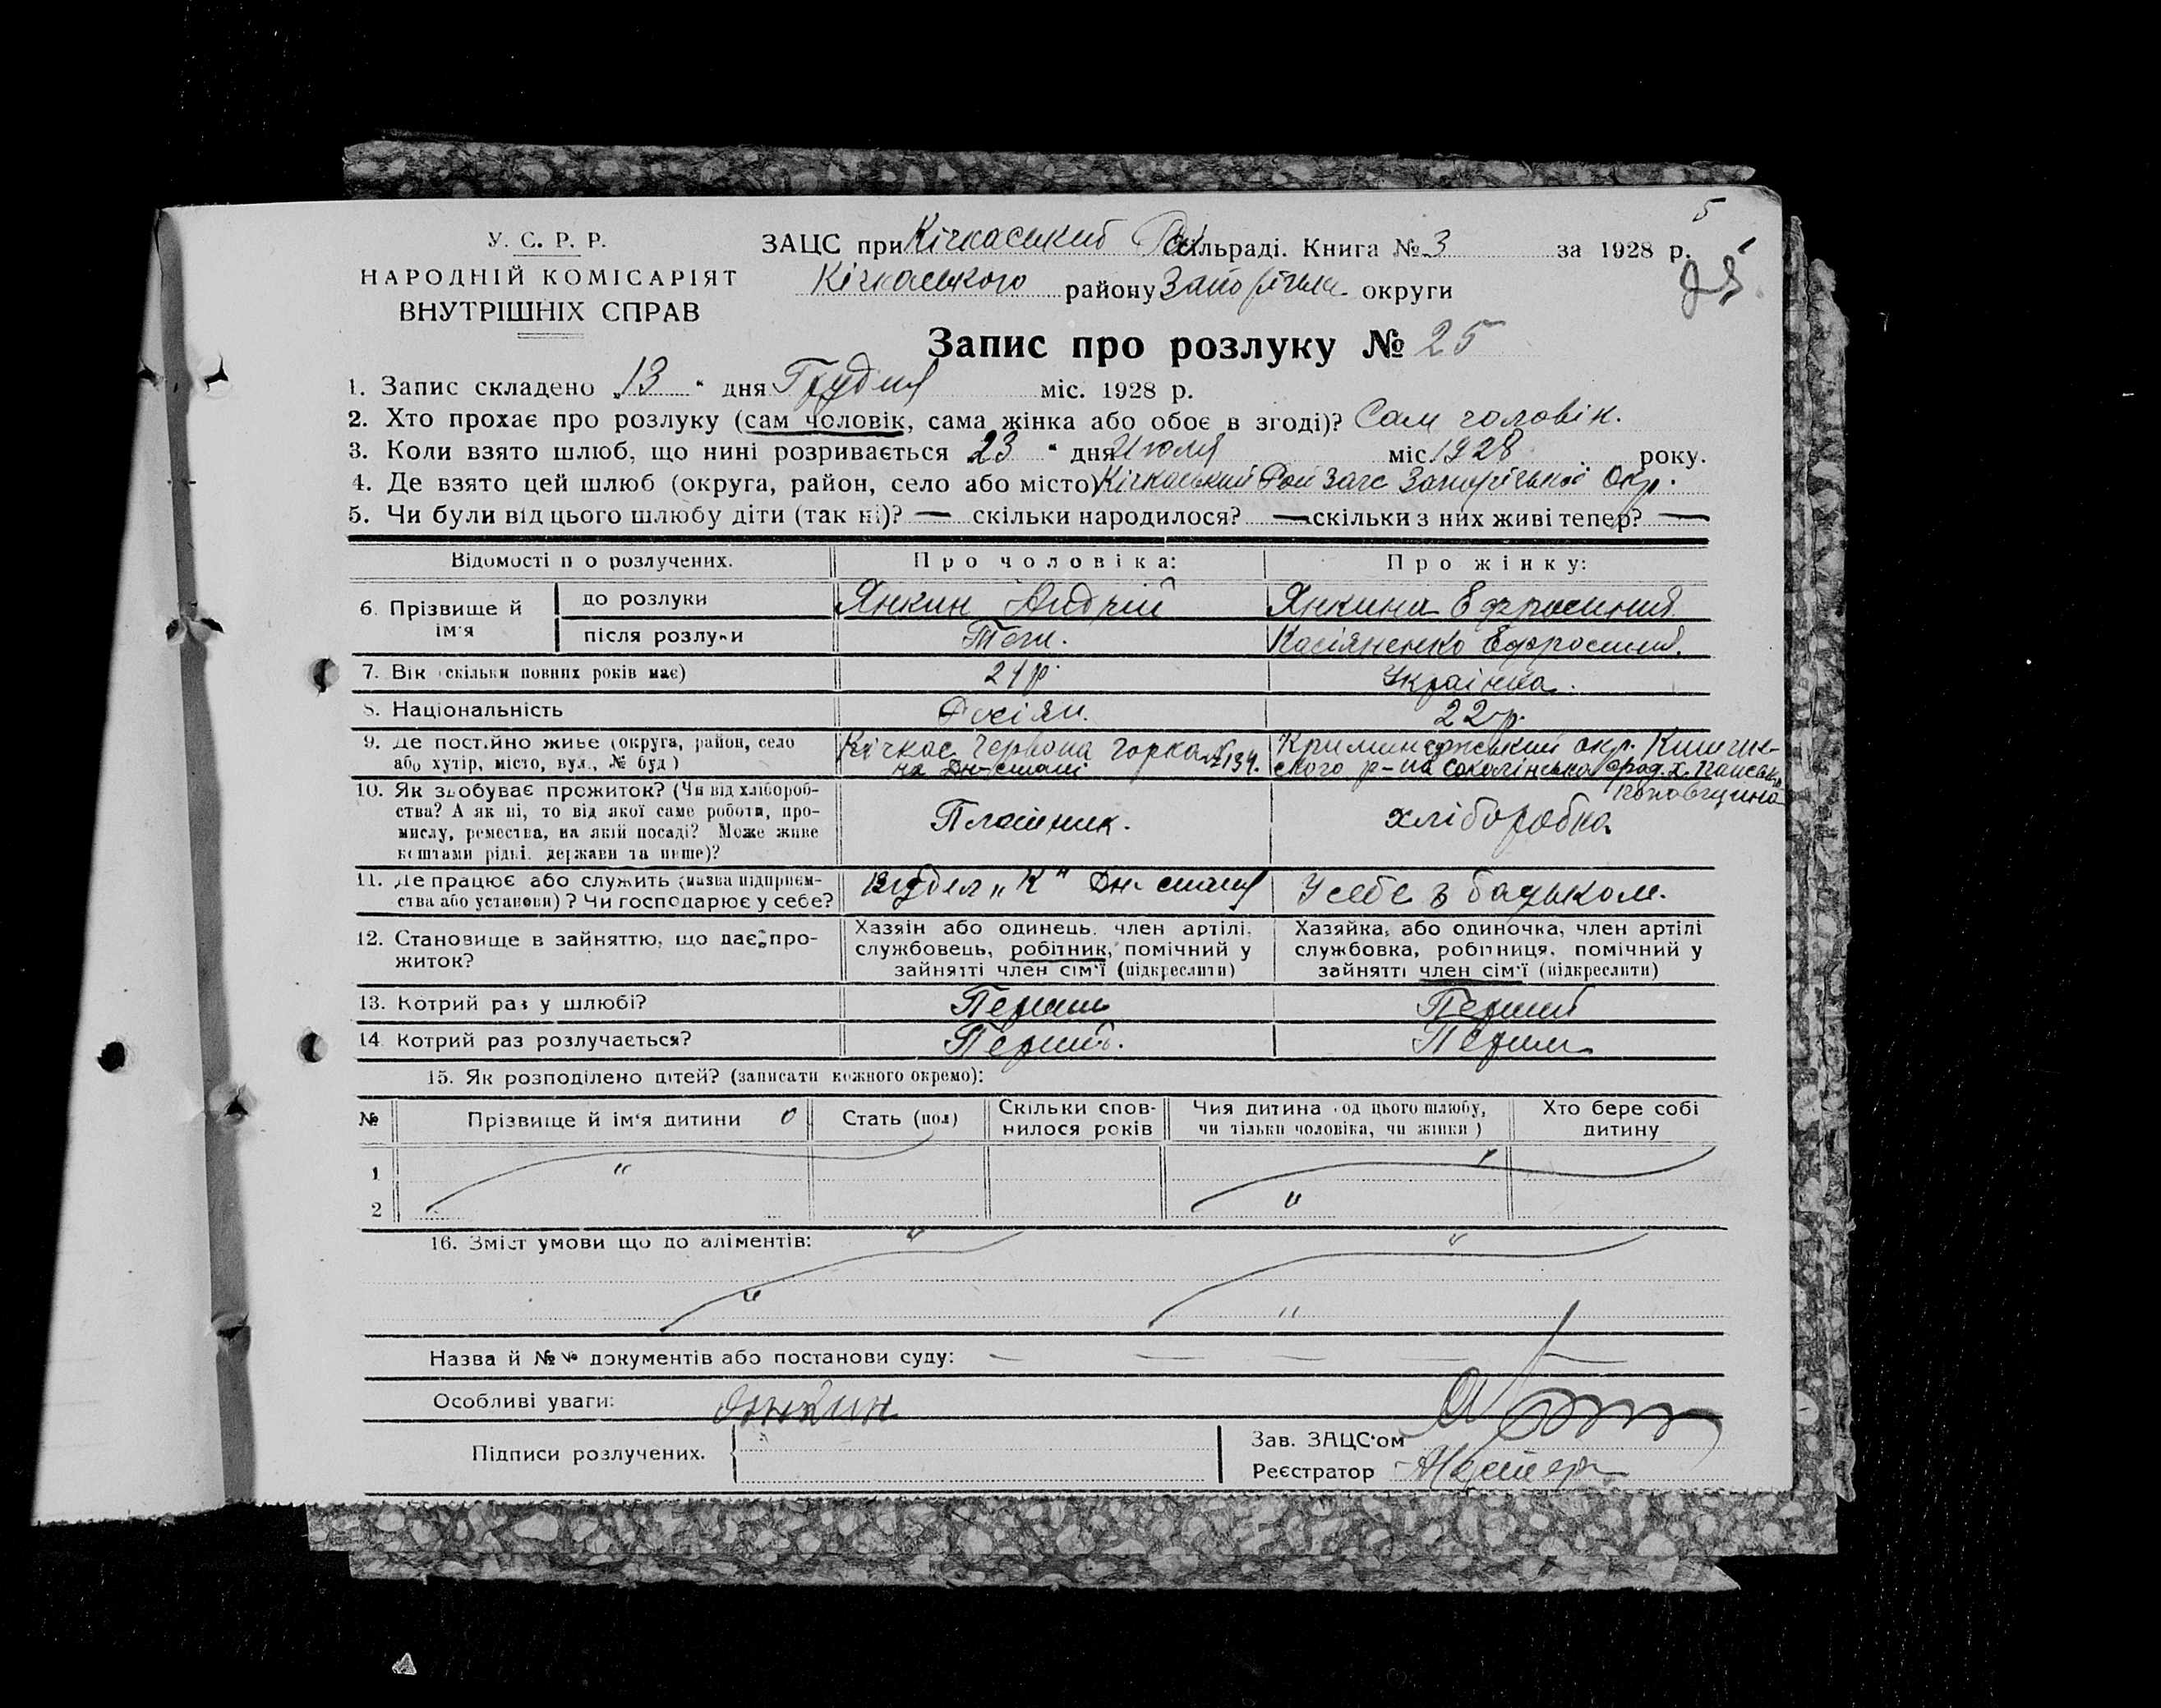 5
У. С. Р. Р.
НАРОДНІЙ КОМІСАРІЯТ
ВНУТРІШНІХ СПРАВ
ЗАЦС при Кічкаський Рай сільраді. Книга № 3 за 1928 р.
Кічкаського району Запоріжськ. округи
Запис про розлуку № 25
1. Запис складено „13“ дня Грудня міс. 1928 р.
2. Хто прохає про розлуку (сам чоловік, сама жінка або обоє в згоді)? Сам чоловік.
3. Коли взято шлюб, що нині розривається 23 “ дня Июля міс. 1928 року.
4. Де взято цей шлюб (округа, район, село або місто) Кічкаський Рай Загс Запоріжської Окр.
5. Чи були від цього шлюбу діти (так ні)? — скільки народилося? — скільки з них живі тепер? —
Відомості п о розлучених. Про чоловіка: Про жінку:
6. Прізвище й ім'я до розлуки Янкин Андрій Янкина Ефросиния
після розлуки Теж. Касіяненко Ефросиния.
7. Вік (скільки повних років має) 21 р. Українка.
8. Національність Росіян. 22 р.
9. Де постійно живе (округа, район, село Кічкас Червона горка №134. Криминчужський окр. Кишеньс-
або хутір, місто, вул., № буд) на Дн-стані ского р-на соколінська срад. х.
10. Як здобуває прожиток? (Чи від хлібороб-
ства? А як ні, то від якої саме роботи, про-
мислу, ремества, на якій посаді? Може живе
коштами рідні, держави та инше)?
Плотник. хліборобка
11. Де працює або служить (назва підприєм- Відділ „К“ Дн-стані У себе з батьком.
ства або установи)? Чи господарює у себе?
12. Становище в зайняттю, що дає про-
житок?
Хазяїн або одинець, член артілі,
службовець, робітник, помічний у
зайнятті член сім'ї (підкреслити)
Хазяйка, або одиночка, член артілі
службовка, робітниця, помічний у
зайнятті член сім'ї (підкреслити)
13. Котрий раз у шлюбі? Перший Перший
14. Котрий раз розлучається? Перший. Перший
15. Як розподілено дітей? (записати кожного окремо):
№ Прізвище й ім'я дитини Стать (пол) Скільки спов-
нилося років Чия дитина (од цього шлюбу,
чи тільки чоловіка, чи жінки) Хто бере собі
дитину
1 "
2 "
16. Зміст умови що до аліментів: " "
" "
Назва й №№ документів або постанови суду: — — — — —
Особливі уваги: Янкин
Підписи розлучених.
Зав. ЗАЦС'ом
Реєстратор